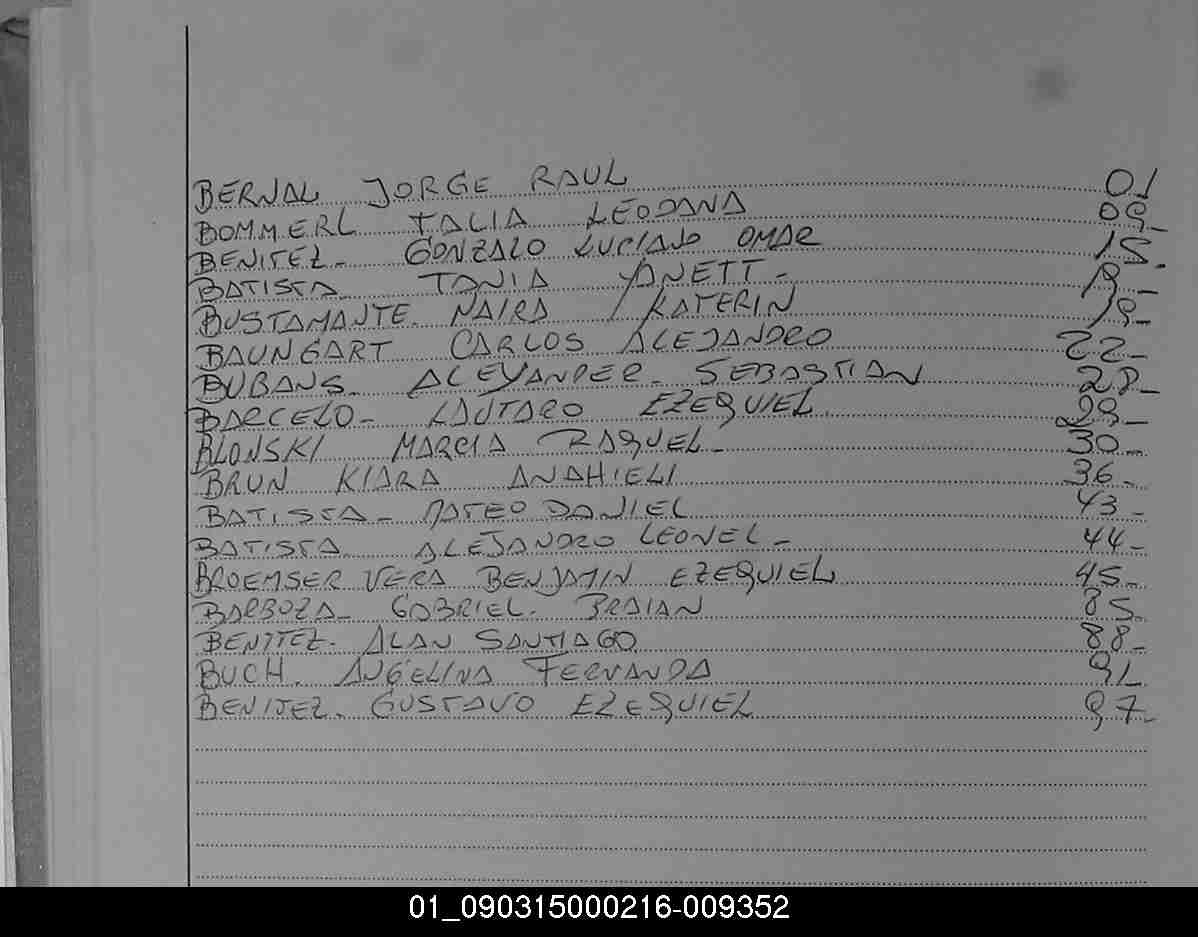 BERNAL JORGE RAUL 01
BOMMERL TALIA LEODANA 09-
BENITEZ- GONZALO LUCIANO OMAR 15-
BATISTA TANIA YANETT- 18-
BUSTAMANTE. NAIRA KATERIN 19-
BAUNGART CARLOS ALEJANDRO 22-
BUBANS- ALEXANDER- SEBASTIAN 28-
BARCELO- LAUTARO EZEQUIEL 29-
BLONSKI MARCIA RAQUEL- 30-
BRUN KIARA ANAHIELI 36-
BATISTA- MATEO DANIEL 43-
BATISTA ALEJANDRO LEONEL- 44-
BROEMSER VERA BENJAMIN EZEQUIEL 45-
BARBOZA- GABRIEL- BRAIAN 85-
BENITEZ- ALAN SANTIAGO 88-
BUCH. ANGELINA FERNANDA 91
BENITEZ- GUSTAVO EZEQUIEL 97-
01_090315000216-009352